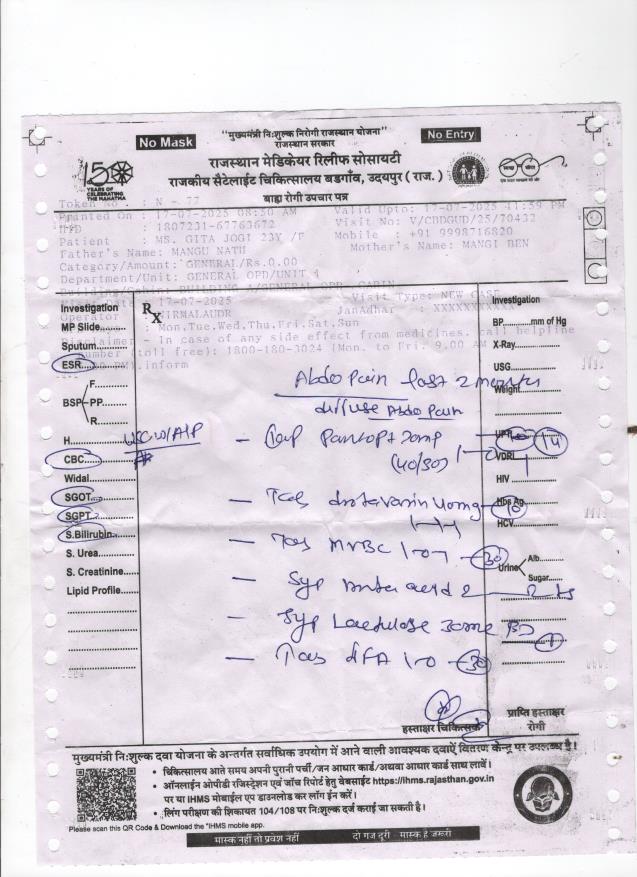 "मुख्यमंत्री निःशुल्क निरोगी राजस्थान योजना"
राजस्थान सरकार
No Mask
No Entry
राजस्थान मेडिकेयर रिलीफ सोसायटी
राजकीय सैटेलाईट चिकित्सालय बडगाँव, उदयपुर ( राज. )
बाह्य रोगी उपचार पत्र
150
YEARS OF
CELEBRATING
THE MAHATMA
Token No : N - 77
Printed On : 17-07-2025 08:50 AM Valid Upto: 17-07-2025 11:59 PM
: 1807231-67763672 Visit No: V/CDDGUD/25/70432
Patient : MS. GITA JOGI 23Y /F Mobile : +91 9998716820
Father's Name: MANGU NATH Mother's Name: MANGI BEN
Category/Amount: GENERAL/Rs.0.00
Department/Unit: GENERAL OPD/UNIT 1
17-07-2025 Visit Type: NEW CASE
Operator NIRMALAUDR JanAadhar : XXXXXXXXXX
Mon,Tue,Wed,Thu,Fri,Sat,Sun
In case of any side effect from medicines. call helpline
number (toll free): 1800-180-3024 (Mon. to Fri. 9.00 AM
PM) inform
Rx
Investigation
MP Slide
Sputum
ESR
BSP F
PP
R
H
CBC
Widal
SGOT
SGPT
S.Bilirubin
S. Urea
S. Creatinine
Lipid Profile
Abdo Pain last 2 months
diffuse Abdo Pain
USG W/A/P
(40/30)
- Tab drotavarin 40mg 10
- Tab MVBC 1-0-1 30
- Syp
- Syp Lactulose 30ml BD 1
- Tab IFA 1-0 30
Investigation
BP mm of Hg
X-Ray
USG
Weight
UPT 14
VDRL
HIV
Hbs Ag
HCV
Urine Alb.
Sugar
हस्ताक्षर चिकित्सक
प्राप्ति हस्ताक्षर
रोगी
मुख्यमंत्री निःशुल्क दवा योजना के अन्तर्गत सर्वाधिक उपयोग में आने वाली आवश्यक दवाऐं वितरण केन्द्र पर उपलब्ध है।
• चिकित्सालय आते समय अपनी पुरानी पर्ची/जन आधार कार्ड/अथवा आधार कार्ड साथ लावें।
• ऑनलाईन ओपीडी रजिस्ट्रेशन एवं जाँच रिपोर्ट हेतु वेबसाईट https://ihms.rajasthan.gov.in
पर या IHMS मोबाईल एप डाउनलोड कर लॉग ईन करें।
• लिंग परीक्षण की शिकायत 104/108 पर निःशुल्क दर्ज कराई जा सकती है।
Please scan this QR Code & Download the "IHMS mobile app.
मास्क नहीं तो प्रवेश नहीं दो गज दूरी मास्क है जरूरी